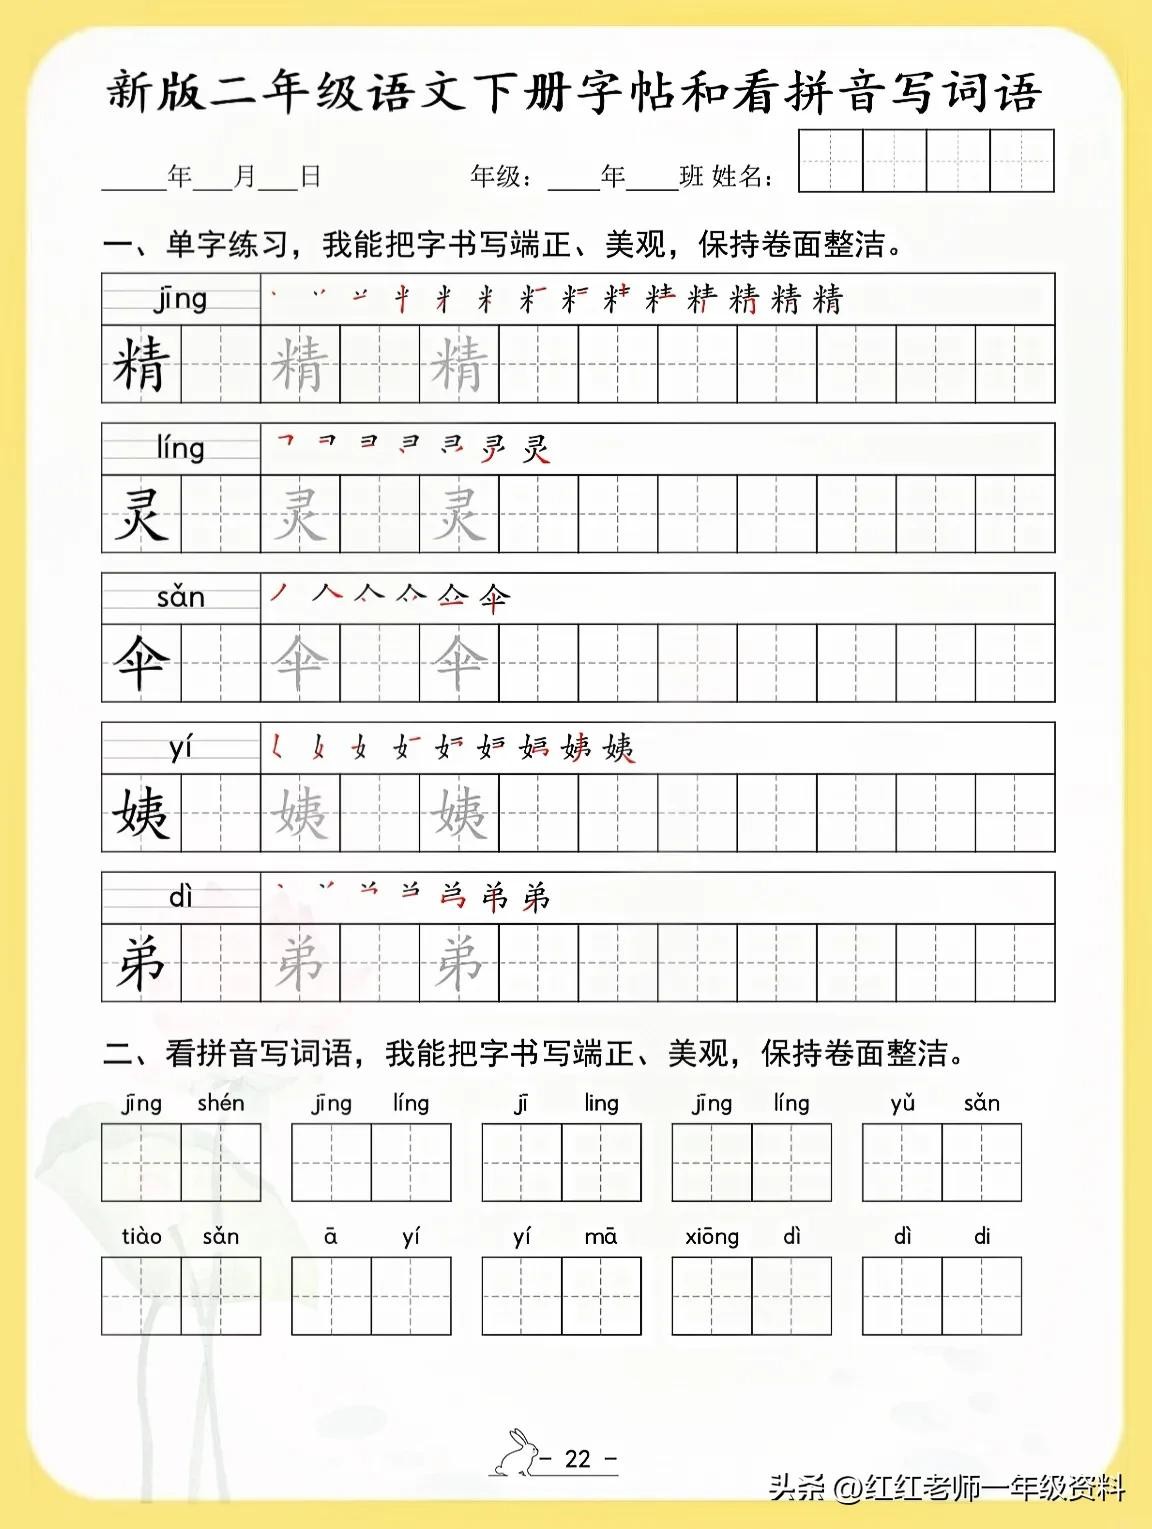 新版二年级语文下册字帖和看拼音写词语
_____年___月___日 年级：____年____班 姓名：
一、单字练习，我能把字书写端正、美观，保持卷面整洁。
jīng
精 精 精
líng
灵 灵 灵
sǎn
伞 伞 伞
yí
姨 姨 姨
dì
弟 弟 弟
二、看拼音写词语，我能把字书写端正、美观，保持卷面整洁。
jīng shén jīng líng jī ling jīng líng yǔ sǎn
tiào sǎn ā yí yí mā xiōng dì dì di
- 22 -
头条 @红红老师一年级资料